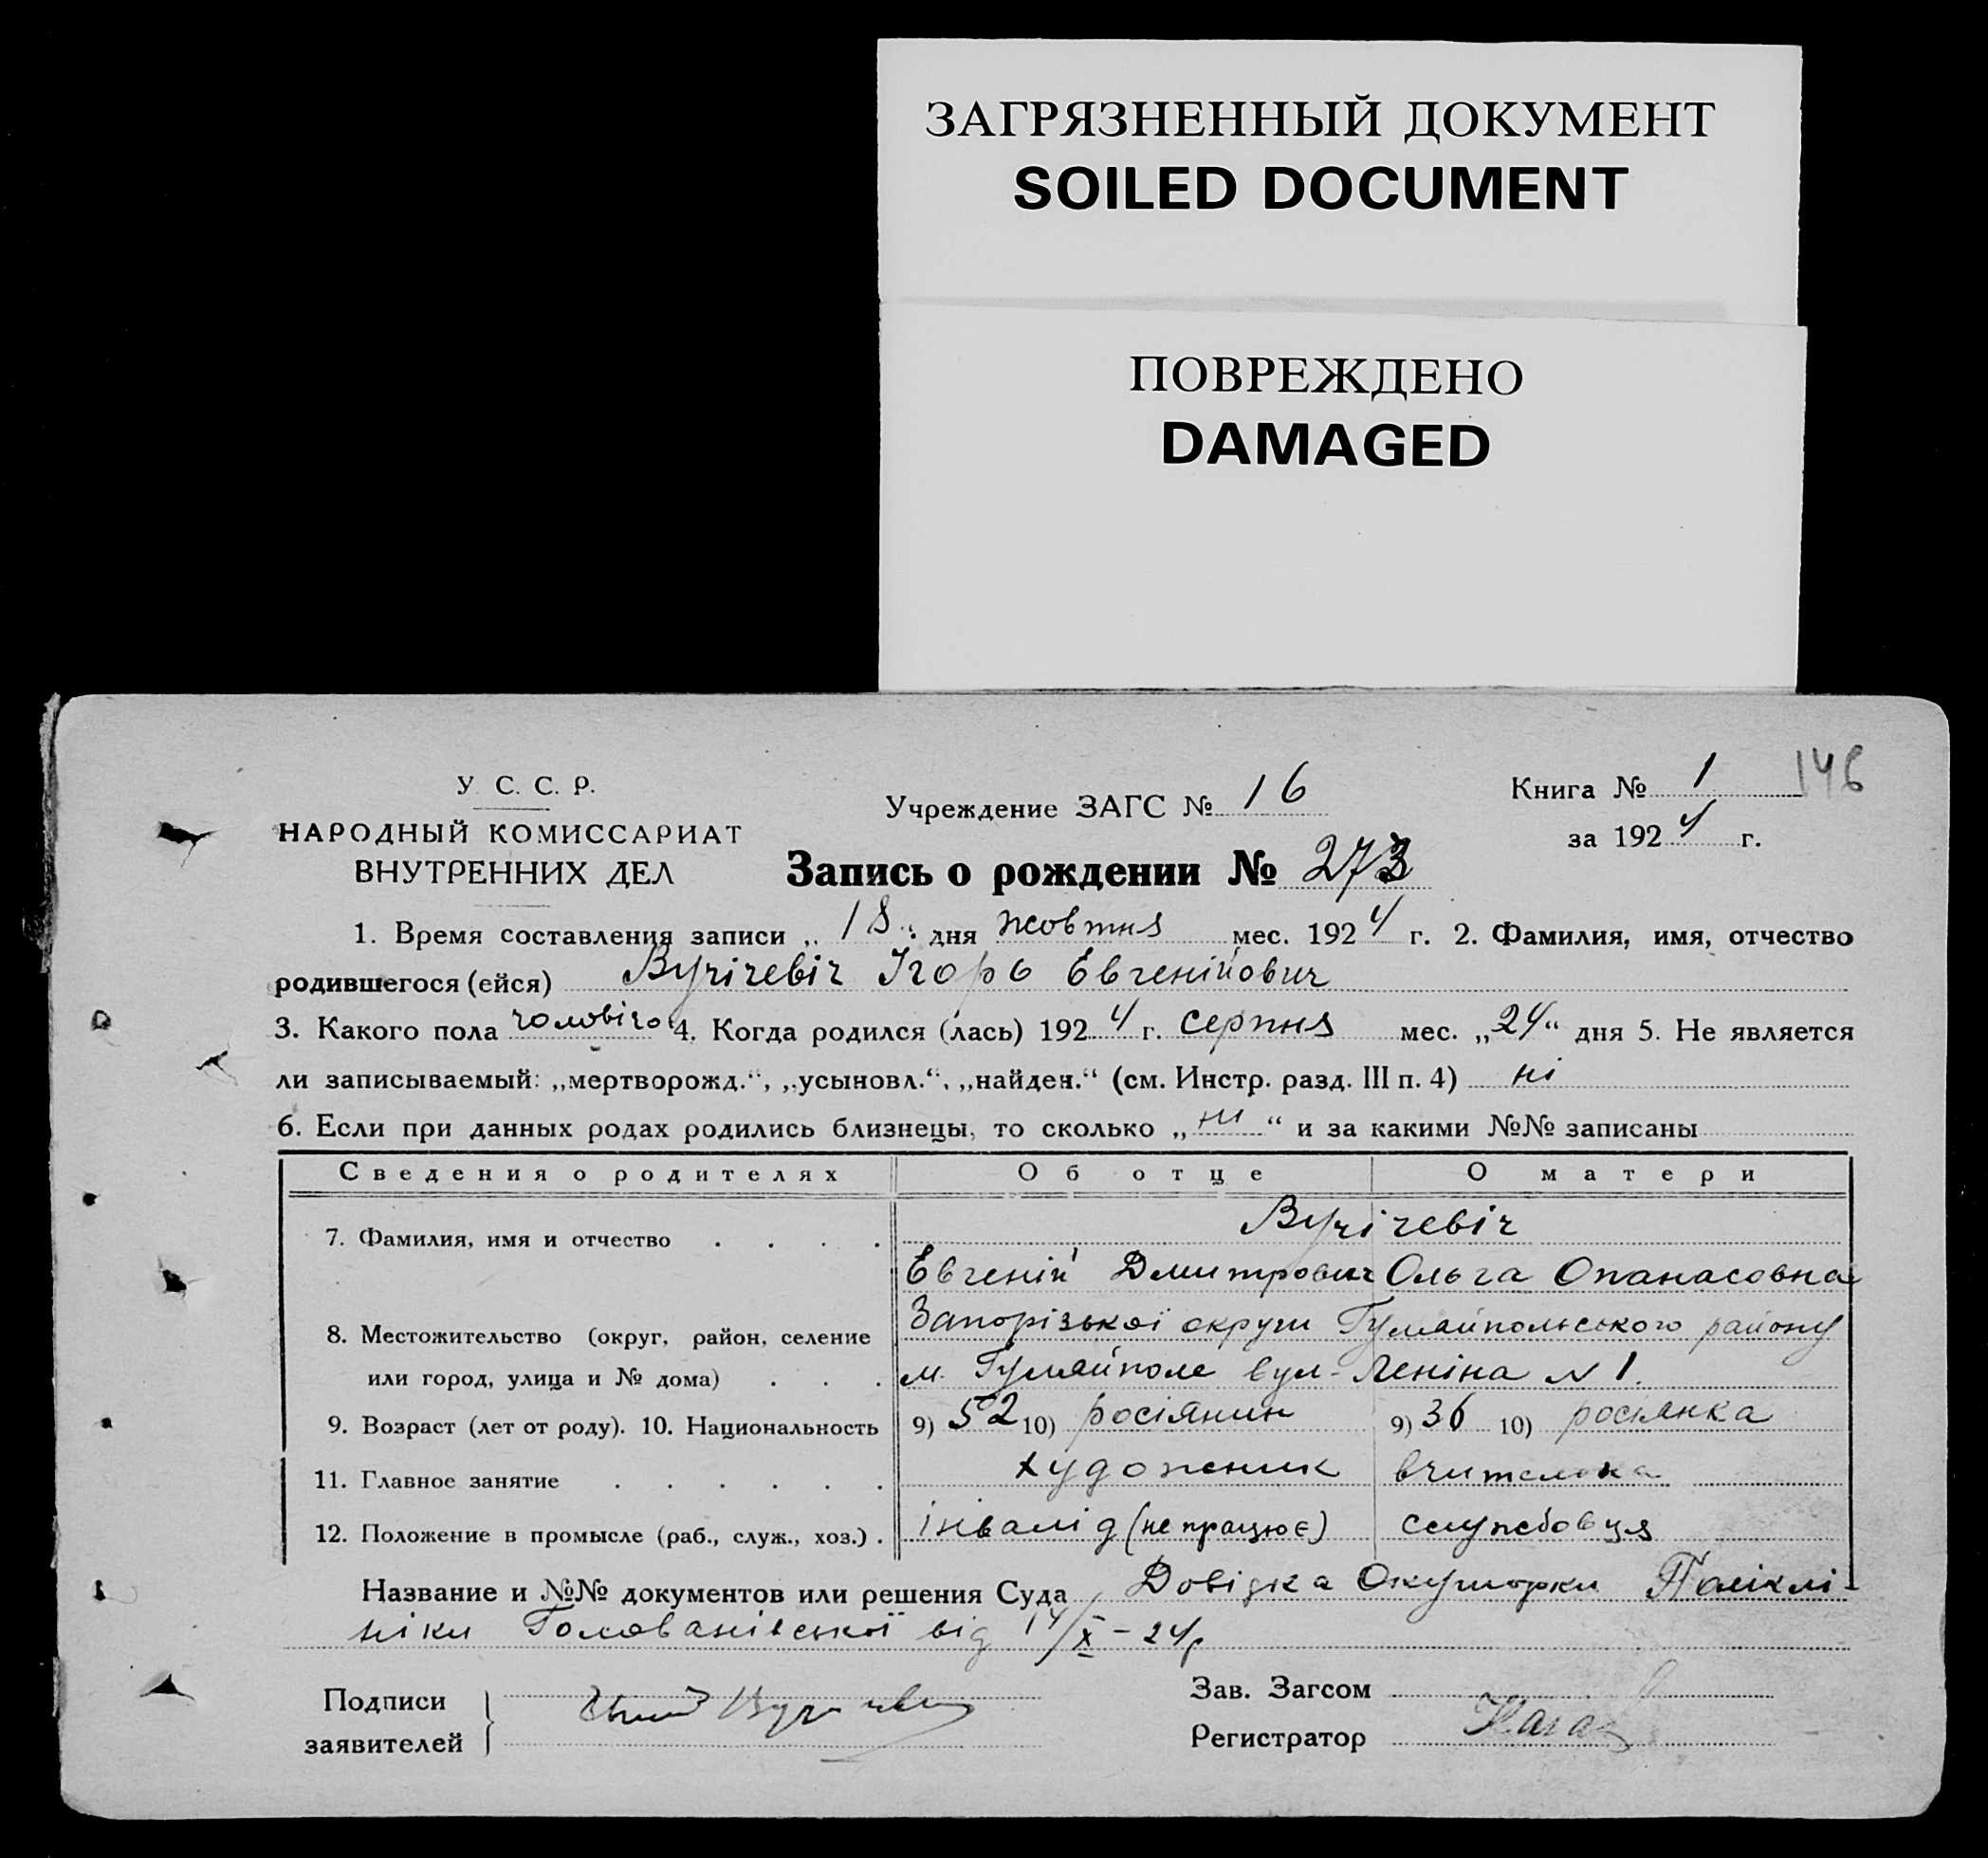 ЗАГРЯЗНЕННЫЙ ДОКУМЕНТ
SOILED DOCUMENT
ПОВРЕЖДЕНО
DAMAGED
146
У. С. С. Р.
НАРОДНЫЙ КОМИССАРИАТ
ВНУТРЕННИХ ДЕЛ
Учреждение ЗАГС № 16
Книга № 1
за 1924 г.
Запись о рождении № 273
1. Время составления записи „ 18 " дня жовтня мес. 1924 г. 2. Фамилия, имя, отчество
родившегося (ейся) Вучічевіч Ігорь Евгенійович
3. Какого пола чоловічо 4. Когда родился (лась) 1924 г. серпня мес. „24“ дня 5. Не является
ли записываемый: „мертворожд.“, „усыновл.“, „найден.“ (см. Инстр. разд. III п. 4) ні
6. Если при данных родах родились близнецы, то сколько „ ні “ и за какими №№ записаны
Сведения о родителях Об отце О матери
7. Фамилия, имя и отчество . . . . Вучічевіч
Евгеній Дмитрович Ольга Опанасовна
8. Местожительство (округ, район, селение Запорізької округи Гуляйпольського району
или город, улица и № дома) . . . м. Гуляйполе вул. Леніна N 1.
9. Возраст (лет от роду). 10. Национальность 9) 52 10) росіянин 9) 36 10) росіянка
11. Главное занятие . . . . . . художник вчителька
12. Положение в промысле (раб., служ., хоз.) . інвалід (не працює) службовця
Название и №№ документов или решения Суда Довідка Окушорки Поліклі-
ніки Голованівської від 14/X - 24р
Подписи
заявителей
Зав. Загсом
Регистратор